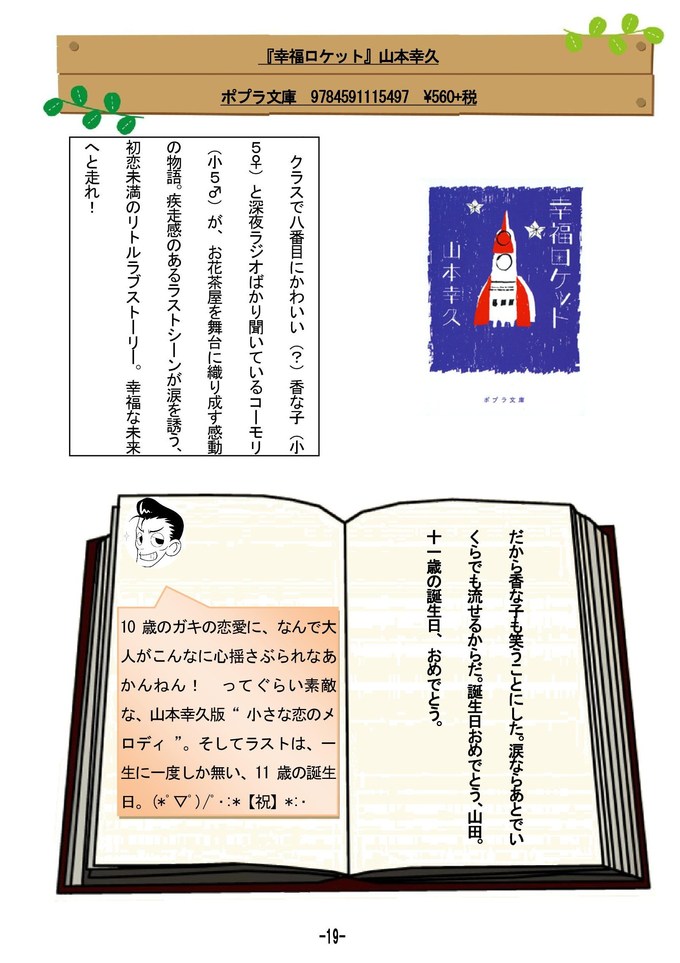 『幸福ロケット』山本幸久
ポプラ文庫　9784591115497　¥560+税
クラスで八番目にかわいい（？）香な子（小
５♀）と深夜ラジオばかり聞いているコーモリ
（小５♂）が、お花茶屋を舞台に織り成す感動
の物語。疾走感のあるラストシーンが涙を誘う、
初恋未満のリトルラブストーリー。幸福な未来
へと走れ！
幸福ロケット
山本幸久
ポプラ文庫
だから香な子も笑うことにした。涙ならあとでい
くらでも流せるからだ。誕生日おめでとう、山田。
十一歳の誕生日、おめでとう。
10 歳のガキの恋愛に、なんで大
人がこんなに心揺さぶられなあ
かんねん！　ってぐらい素敵
な、山本幸久版“ 小さな恋のメ
ロディ ”。そしてラストは、一
生に一度しか無い、11 歳の誕生
日。(*ﾟ▽ﾟ)/ﾟ･:*【祝】*:･
-19-